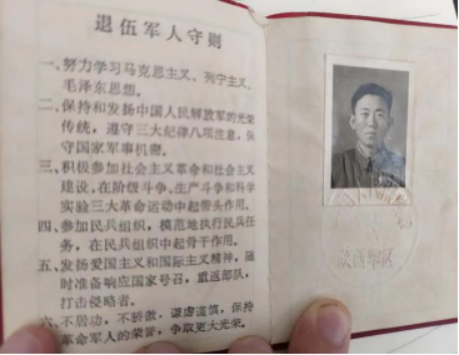 退伍军人守则
一、努力学习马克思主义、列宁主义、
毛泽东思想。
二、保持和发扬中国人民解放军的光荣
传统，遵守三大纪律八项注意，保
守国家军事机密。
三、积极参加社会主义革命和社会主义
建设，在阶级斗争、生产斗争和科学
实验三大革命运动中起带头作用。
四、参加民兵组织，模范地执行民兵任
务，在民兵组织中起骨干作用。
五、发扬爱国主义和国际主义精神，随
时准备响应国家号召，重返部队，
打击侵略者。
六、不居功，不骄傲，谦虚谨慎，保持
革命军人的荣誉，争取更大光荣。
陕西军区